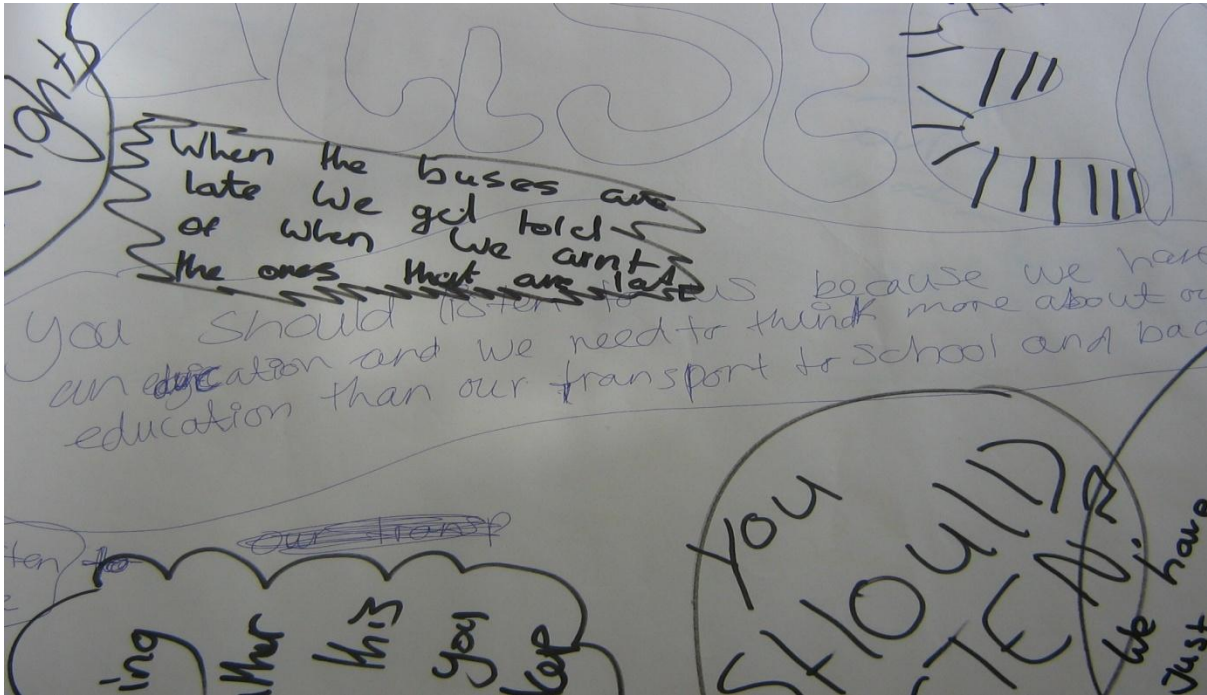 ight
When the buses are
late we get told
of when we arnt
the ones that are late
you should listen to us because we have
an education and we need to think more about ou
education than our transport to school and bac
our transp
ten to
ing
this
you
YOU
SHOULD
STEN
We have
Just